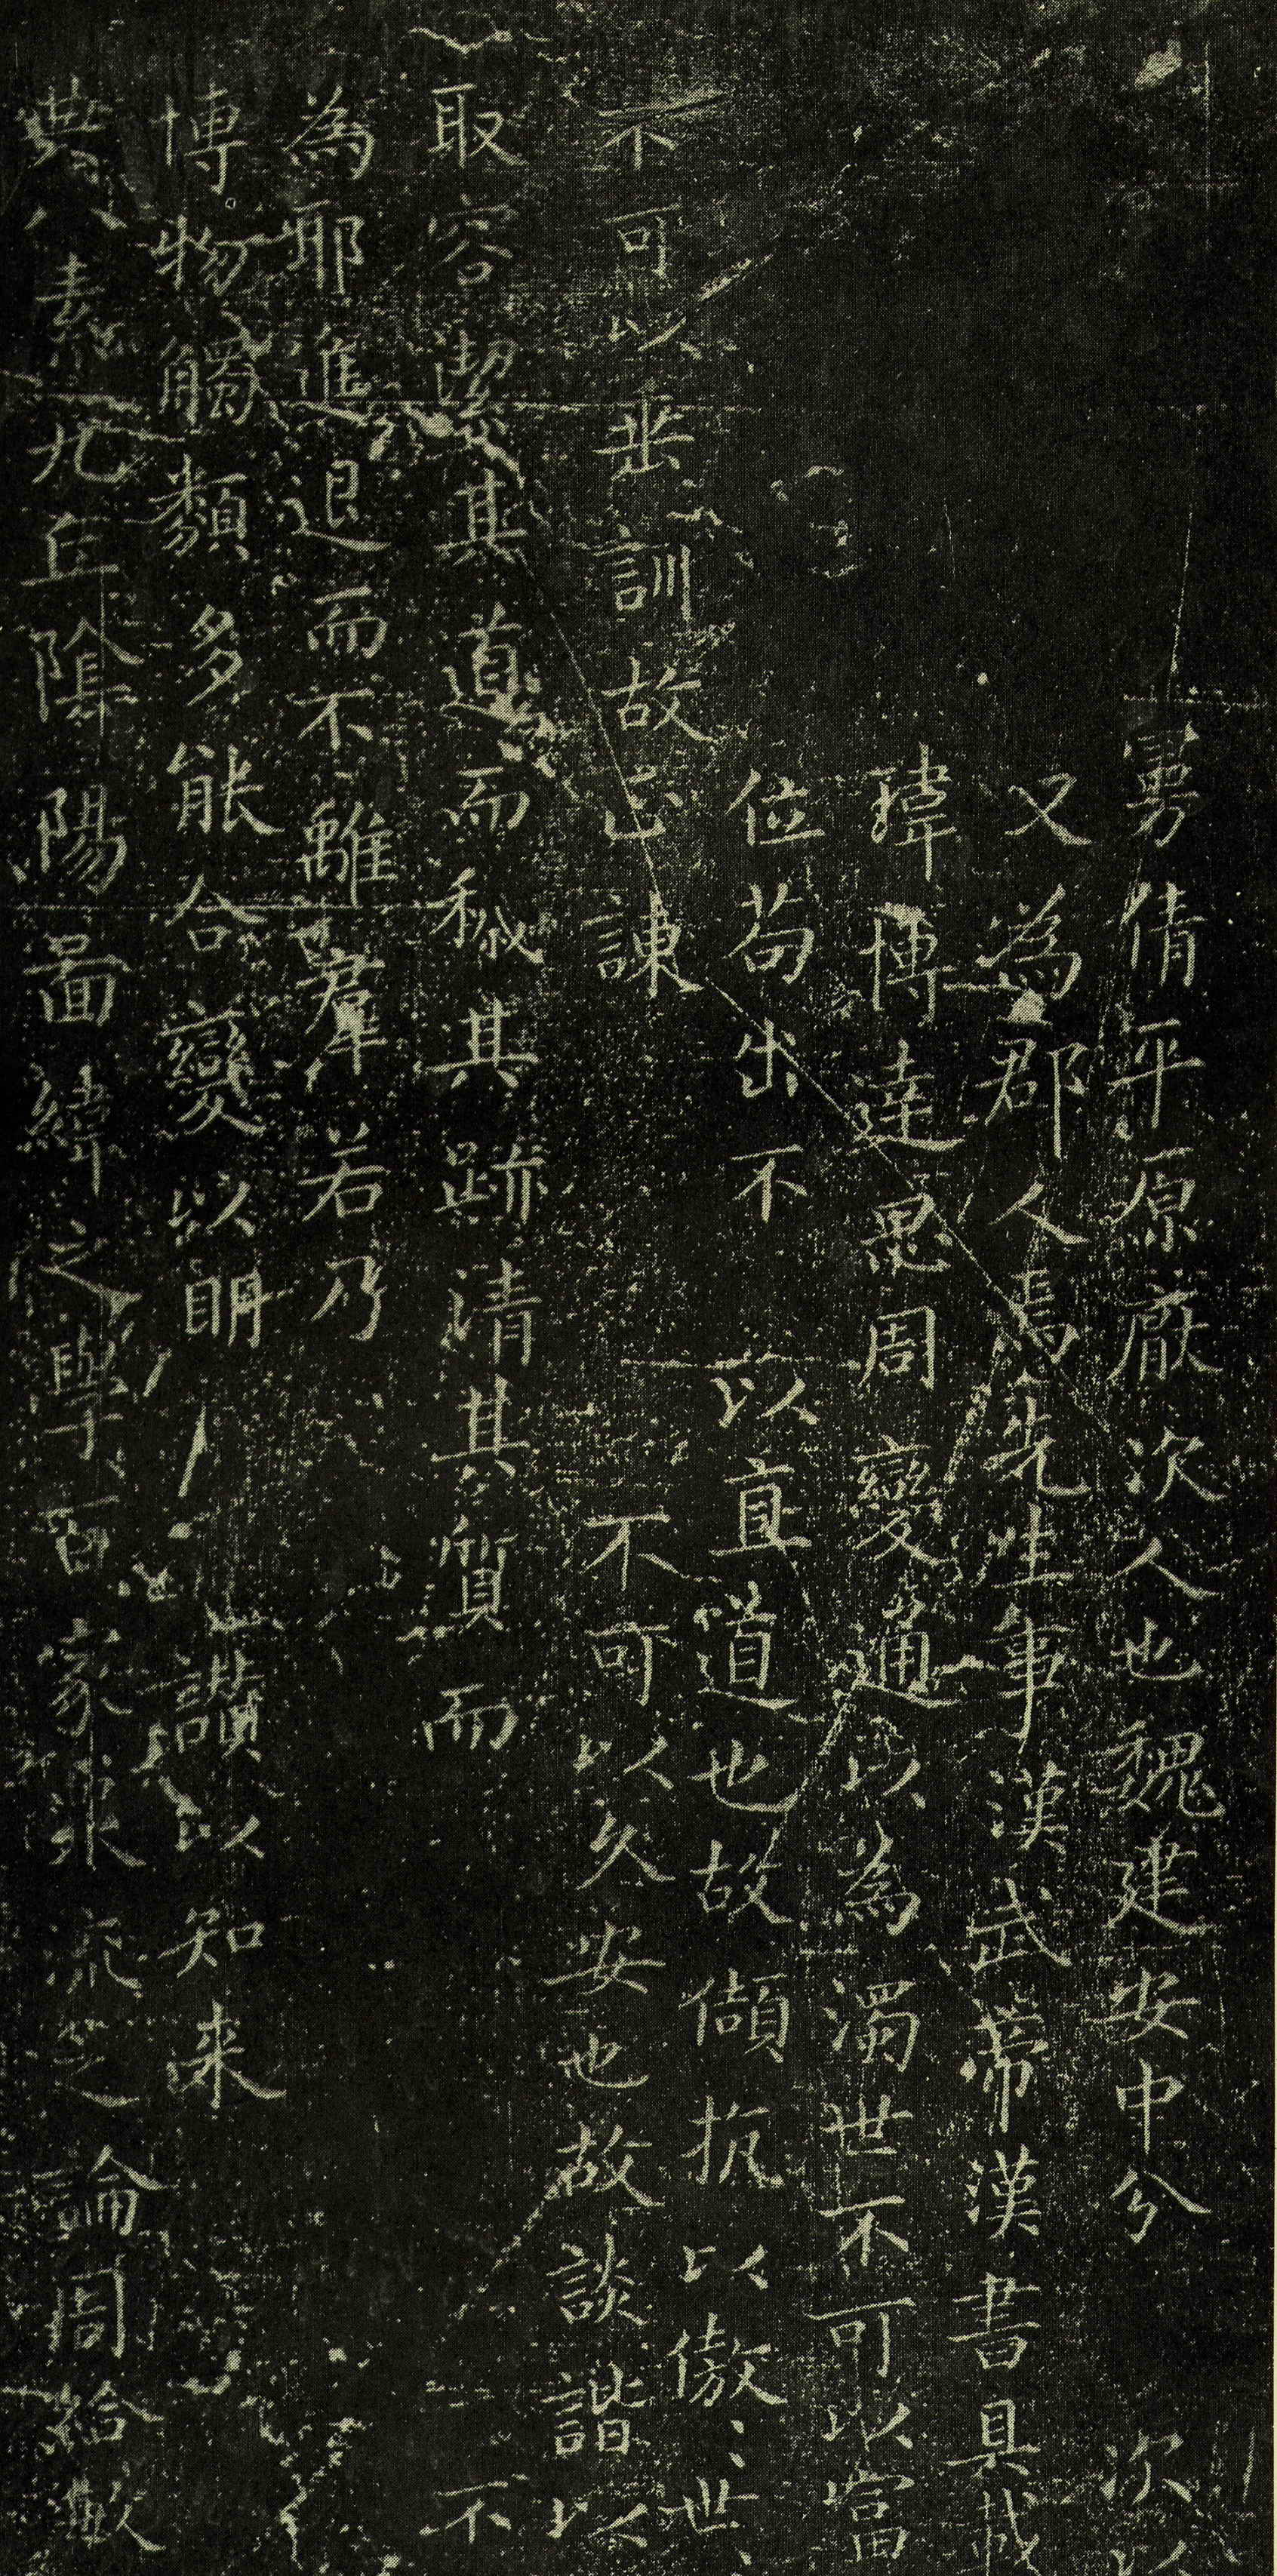 曼倩平原厭次人也魏建安中分 次以
又為郡人焉先生事漢武帝漢書具載
瑋博達思周變通以為濁世不可以富
位苟出不 以直道也故傾抗以傲世
不可以垂訓故正諫 不可以久安也故談諧以
取容潔其道而穢其跡清其質而 不
為耶進退而不離羣若乃
博物觸類多能合變以明 讚以知来
典八素九丘陰陽圖緯之學百家眾流之論周給敏